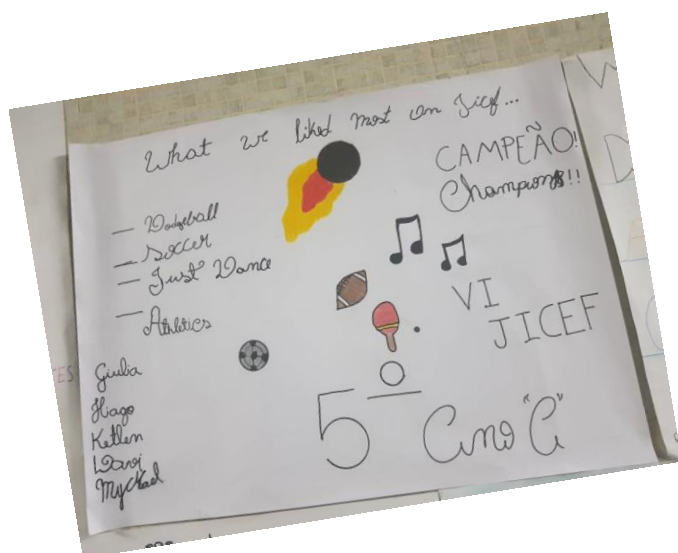 What we liked most on Jicef...
CAMPEÃO!
Champions!!
— Dodgeball
— Soccer
— Just Dance
— Athletics
VI
JICEF
Giulia
Hiago
Ketlen
Davi
Myckael
5º Ano "A"